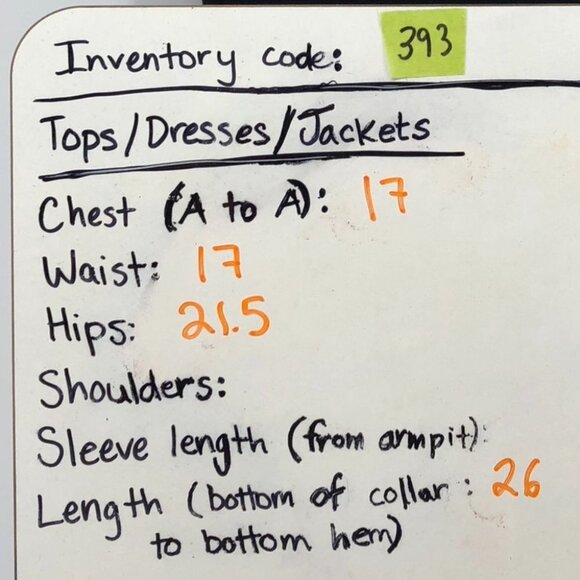 Inventory code: 393
Tops/Dresses/Jackets
Chest (A to A): 17
Waist: 17
Hips: 21.5
Shoulders:
Sleeve length (from armpit):
Length (bottom of collar : 26
to bottom hem)